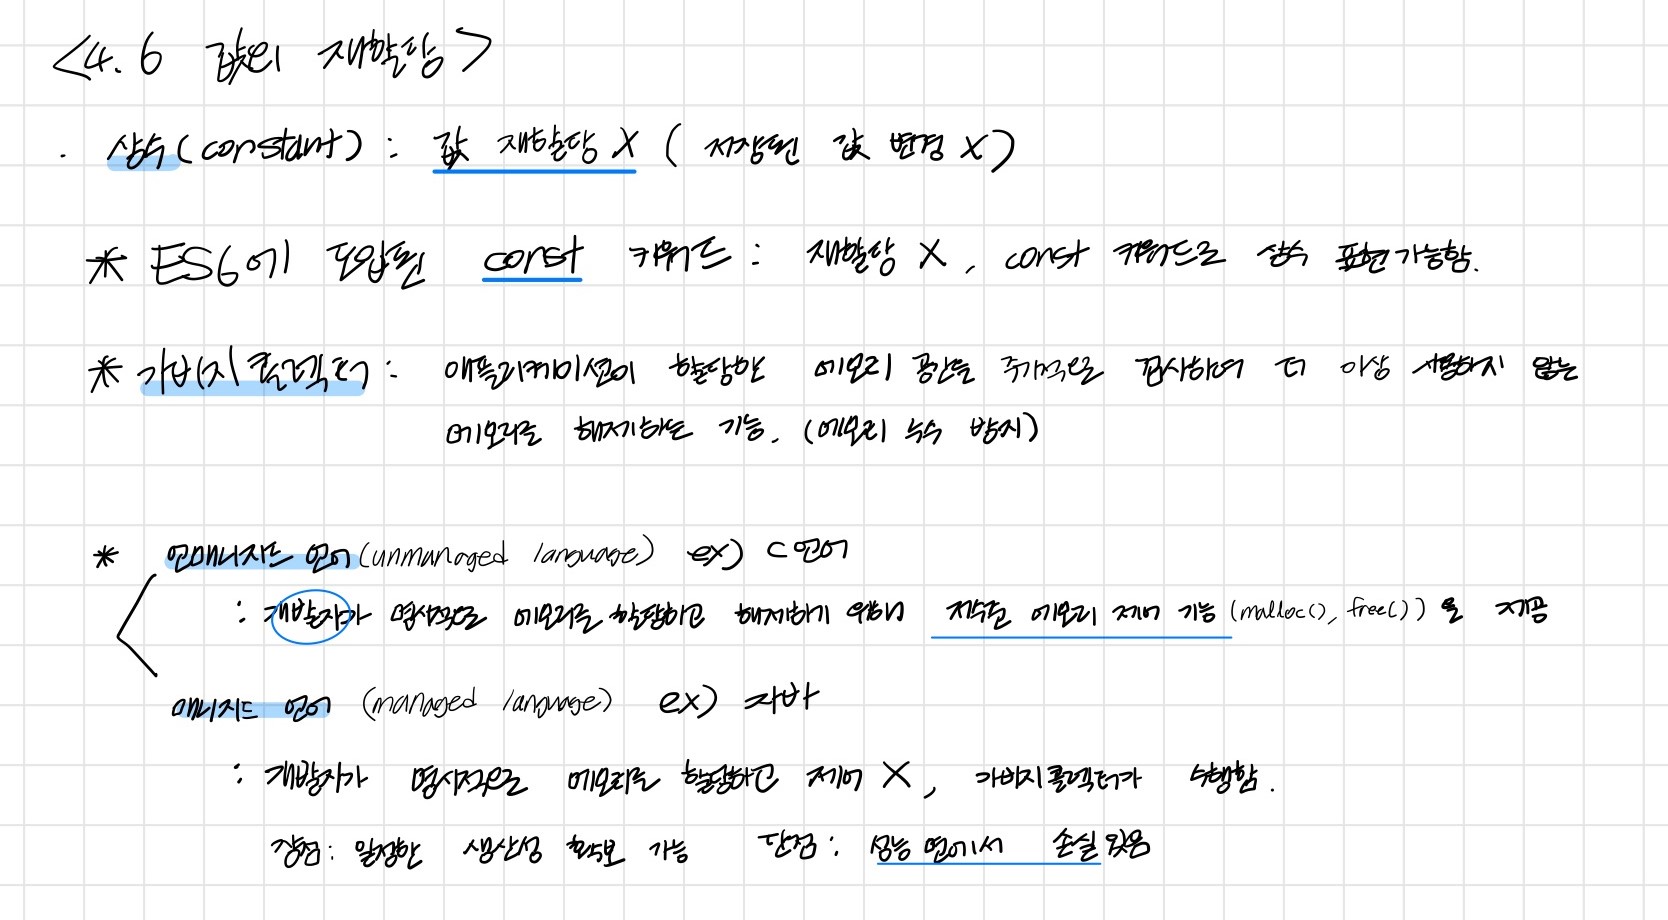 <4.6 값의 재할당>
· 상수(constant) : 값 재할당 X ( 저장된 값 변경 X)
* ES6에 도입된 const 키워드 : 재할당 X, const 키워드로 상수 표현 가능함.
* 가비지 콜렉터 : 애플리케이션이 할당한 메모리 공간을 주기적으로 검사하여 더 이상 사용하지 않는
메모리를 해제하는 기능. (메모리 누수 방지)
* 언매니지드 언어(unmanaged language) ex) C언어
: 개발자가 명시적으로 메모리를 할당하고 해제하기 위해서 저수준 메모리 제어 기능 (malloc(), free()) 을 제공
매니지드 언어 (managed language) ex) 자바
: 개발자가 명시적으로 메모리를 할당하고 제어 X, 가비지콜렉터가 수행함.
장점: 일정한 생산성 확보 가능 단점 : 성능 면에서 손실 있음